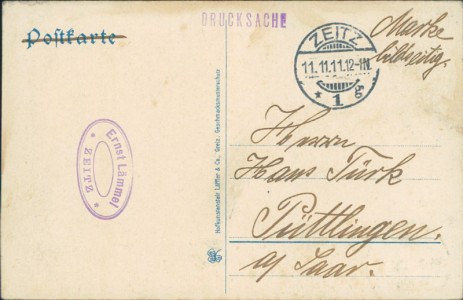 DRUCKSACHE
Postkarte
Marke
bildseitig.
ZEITZ
11.11.11.12-1N.
* 1 g
Herrn
Hans Türk
Püttlingen.
a/ Saar.
Ernst Lämmel
* ZEITZ *
Hofkunstanstalt Löffler & Co., Greiz. Geschmacksmusterschutz